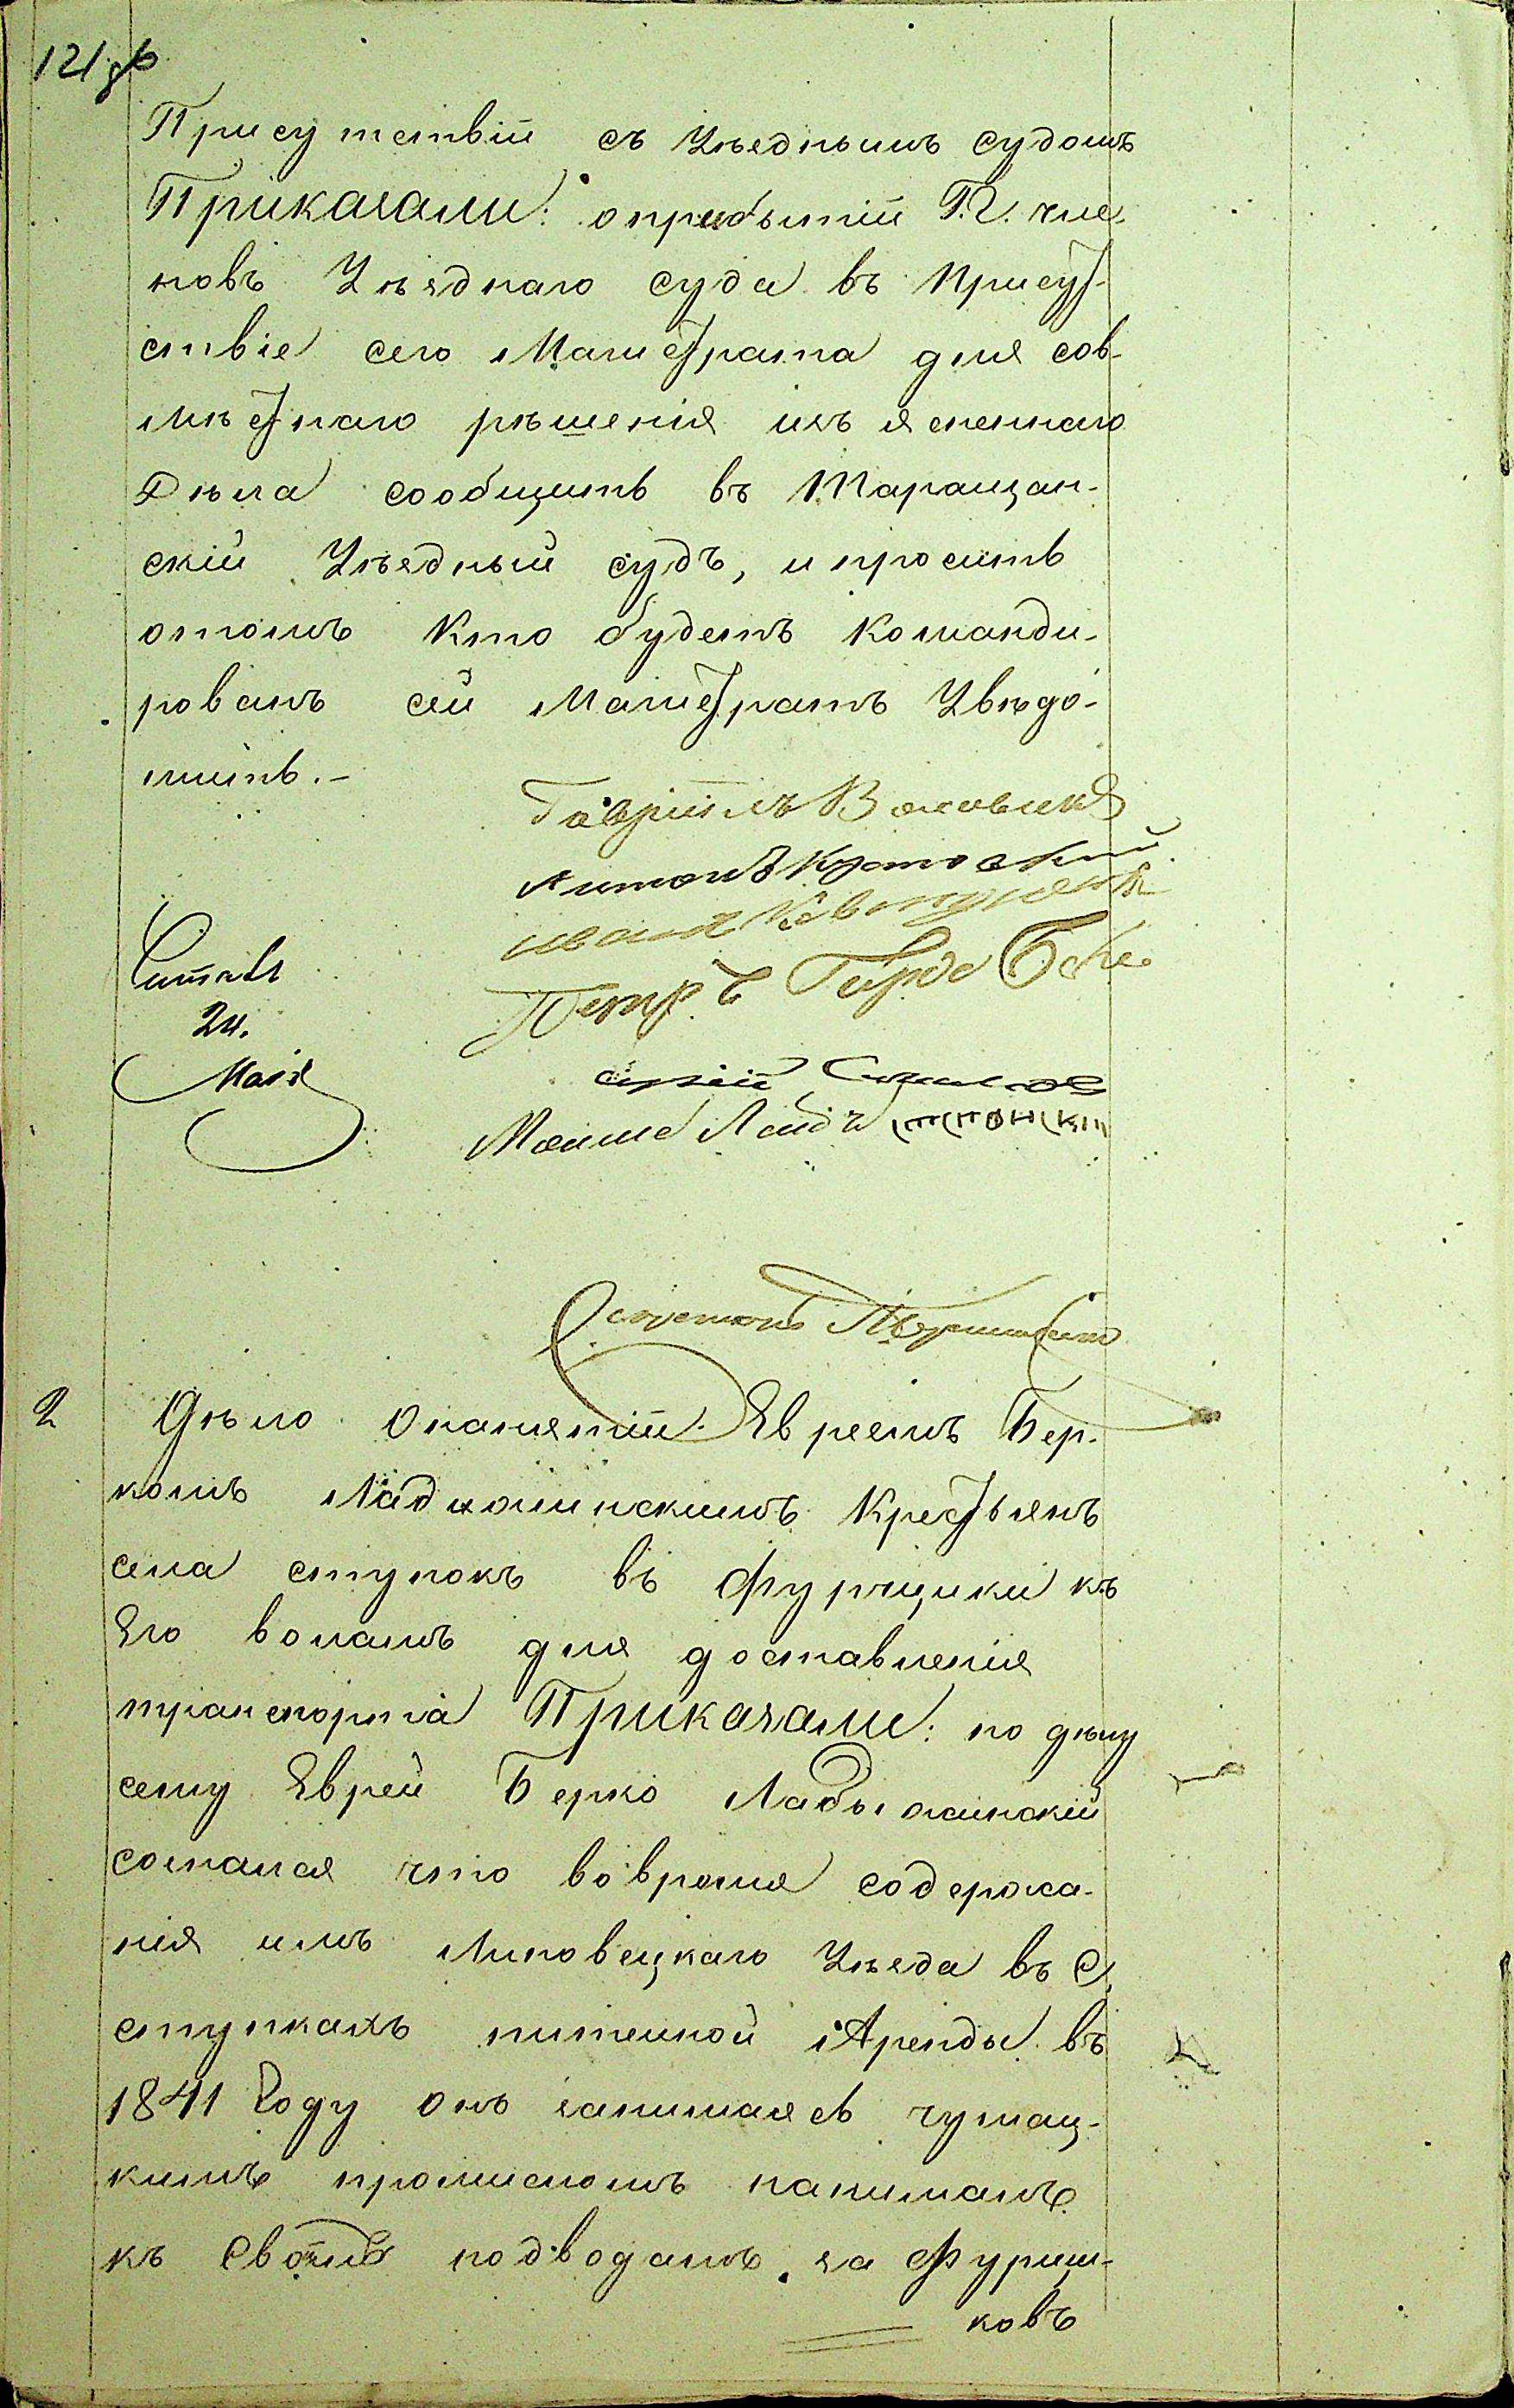 121 об
Присутствіи съ Уѣзднымъ судомъ
Приказали: оприбытіи Г.Г. чле-
новъ Уѣзднаго суда въ присут-
ствіе сего Магистрата для сов-
мѣстнаго рѣшенія изъясненнаго
Дѣла сообщить въ Таращан-
скій Уѣздный судъ, и просить
отомъ кто будетъ командиро-
рованъ сей Магистратъ Увѣдо-
мить.-
Гавріилъ
Антонъ
Иванъ
Петръ
Читалъ
24.
Маія
Мошко
2 Дѣло онанятіи Евреемъ Бер-
комъ Ладыжинскимъ Крестьянъ
села ступокъ въ фурщики къ
Его воламъ для доставленія
транспорта Приказали: по дѣлу
сему Еврей Берко Ладыжинскій
сознался что вовремя содержа-
нія имъ Липовецкаго Уѣзда въ С.
ступкахъ питейной Аренды въ
1841 Году онъ занимаясь чумац-
кимъ промисломъ нанималъ
къ своимъ подводамъ за Фурщи-
ковъ